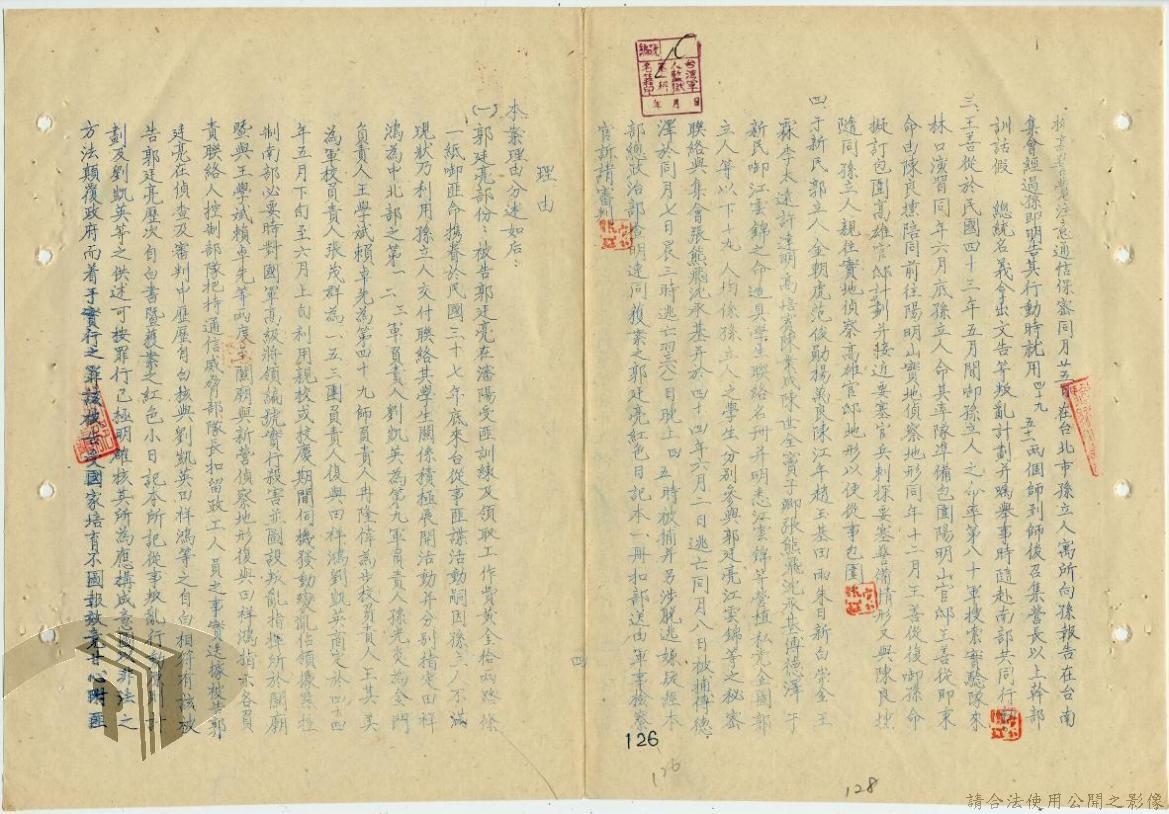 集會經過孫即明告其行動時就用四十九五十一兩個師到師後召集營長以上幹部
訓話假 總統名義令出文告等叛亂計劃并囑舉事時隨赴南部共同行動
三、王善從於民國四十三年五月間啣孫立人之命率第八十軍搜索實驗隊來
林口演習同年六月底孫立人命其率隊準備包圍陽明山官邸王善從即秉
命由陳良壎陪同前往陽明山實地偵察地形同年十二月王善從復啣孫命
擬訂包圍高雄官邸計劃并接近要塞官兵刺探要塞警備情形又與陳良壎
隨同孫立人親往實地偵察高雄官邸地形以便從事包圍
四、于新民郭立人金朝虎范俊勛楊萬良陳江年趙玉基田雨朱日新白崇金王
霖李太遠許達明高培賓陳業成陳世全竇子卿張熊飛沈承基傅德澤 于
新民啣江雲錦之命造具學生聯絡名冊并明悉江雲錦等營植私黨企圖郭
立人等以下十九人均係孫立人之學生分別參與郭廷亮江雲錦等之秘密
聯絡與集會張熊飛沈承基并於四十四年六月二日逃亡同月八日被捕傅德
澤於同月七日晨三時逃亡 晚上 五時被捕并另涉脫逃嫌疑經本
部總政治部查明連同獲案之郭廷亮紅色日記本一冊扣部送由軍事檢察
官訴請審判
理由
本案理由分述如后：
(一)郭廷亮部份：被告郭廷亮在瀋陽受匪訓練及領取工作費黃金拾兩路條
一紙啣匪命携眷於民國三十七年底來台從事匪諜活動嗣因孫立人不滿
現狀乃利用孫立人交付聯絡其學生關係積極展開活動并分別指定田祥
鴻為中北部之第一、二、三軍員責人劉凱英為第九軍員責人孫光炎為金門
負責人王學斌賴卓先為第四十九師員責人冉隆偉為步校員責人王其美
為軍校員責人張茂群為一五三團員責人復與田祥鴻劉凱英商定於四十四
年五月下旬至六月上旬利用親校或校慶期間伺機發動變亂佔領據點控
制南部必要時對國軍高級將領 實行殺害並圖設叛亂指揮所於關廟
暨與王學斌賴卓先等兩度至關廟與新營偵察地形復與田祥鴻指示各員
責聯絡人控制部隊把持通信威脅部隊長扣留政工人員之事實迭據被告郭
廷亮在偵查及審判中歷歷自白核與劉凱英田祥鴻等之自白相符有該被
告郭廷亮歷次自白書暨獲案之紅色小日記本所記從事叛亂行動
劃及劉凱英等之供述可按罪行已極明確核其所為應構成意圖以非法之
方法顛覆政府而着手實行之罪該被告受國家培育不圖報效竟甘心附匪
126
126
128
請合法使用公開之影像